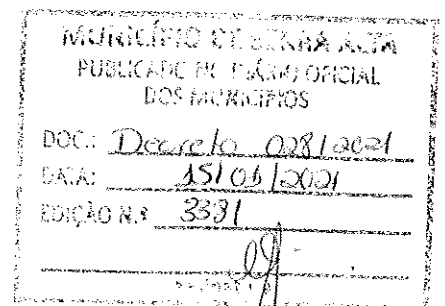 MUNICÍPIO DE SERRA ALTA
PUBLICADO NO DIÁRIO OFICIAL
DOS MUNICÍPIOS
DOC.: Decreto 028/2021
DATA: 15/01/2021
EDIÇÃO N.º 3381